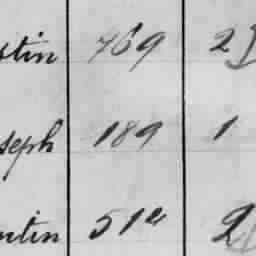 stin 769 2
seph 189 1
ntin 51e 2